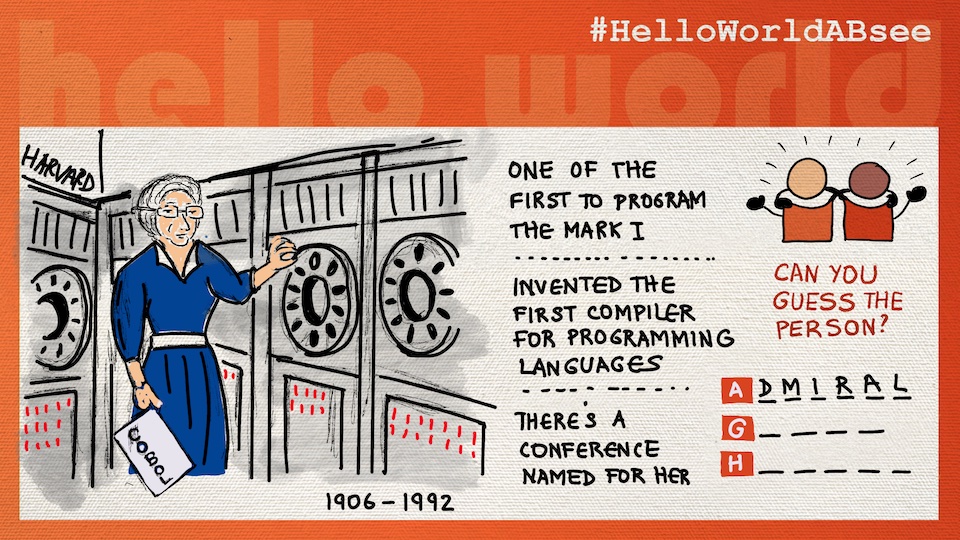 #HelloWorldABsee
hello world
HARVARD
COBOL
1906-1992
ONE OF THE
FIRST TO PROGRAM
THE MARK I
INVENTED THE
FIRST COMPILER
FOR PROGRAMMING
LANGUAGES
THERE'S A
CONFERENCE
NAMED FOR HER
CAN YOU
GUESS THE
PERSON?
ADMIRAL
G _ _ _ _
H _ _ _ _ _